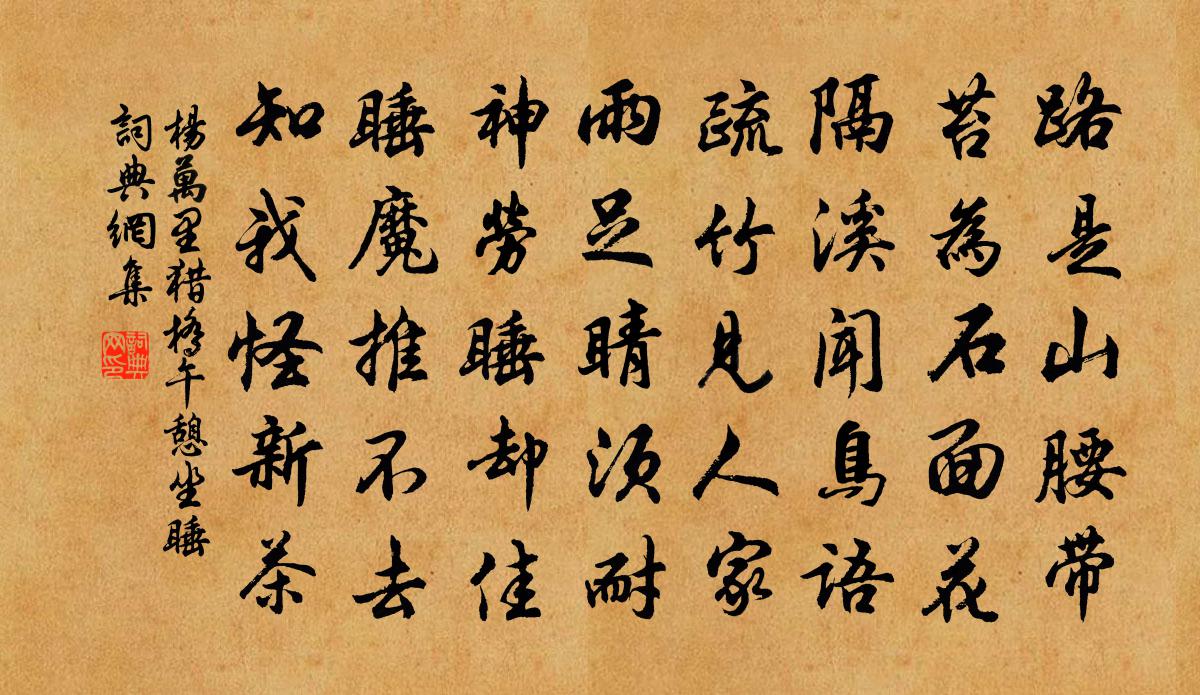 路是山腰帶
苔為石面花
隔溪聞鳥語
疏竹見人家
雨足晴須耐
神勞睡却佳
睡魔推不去
知我怪新茶
楊萬里猎橋午憩坐睡
詞典網集
詞典
网印